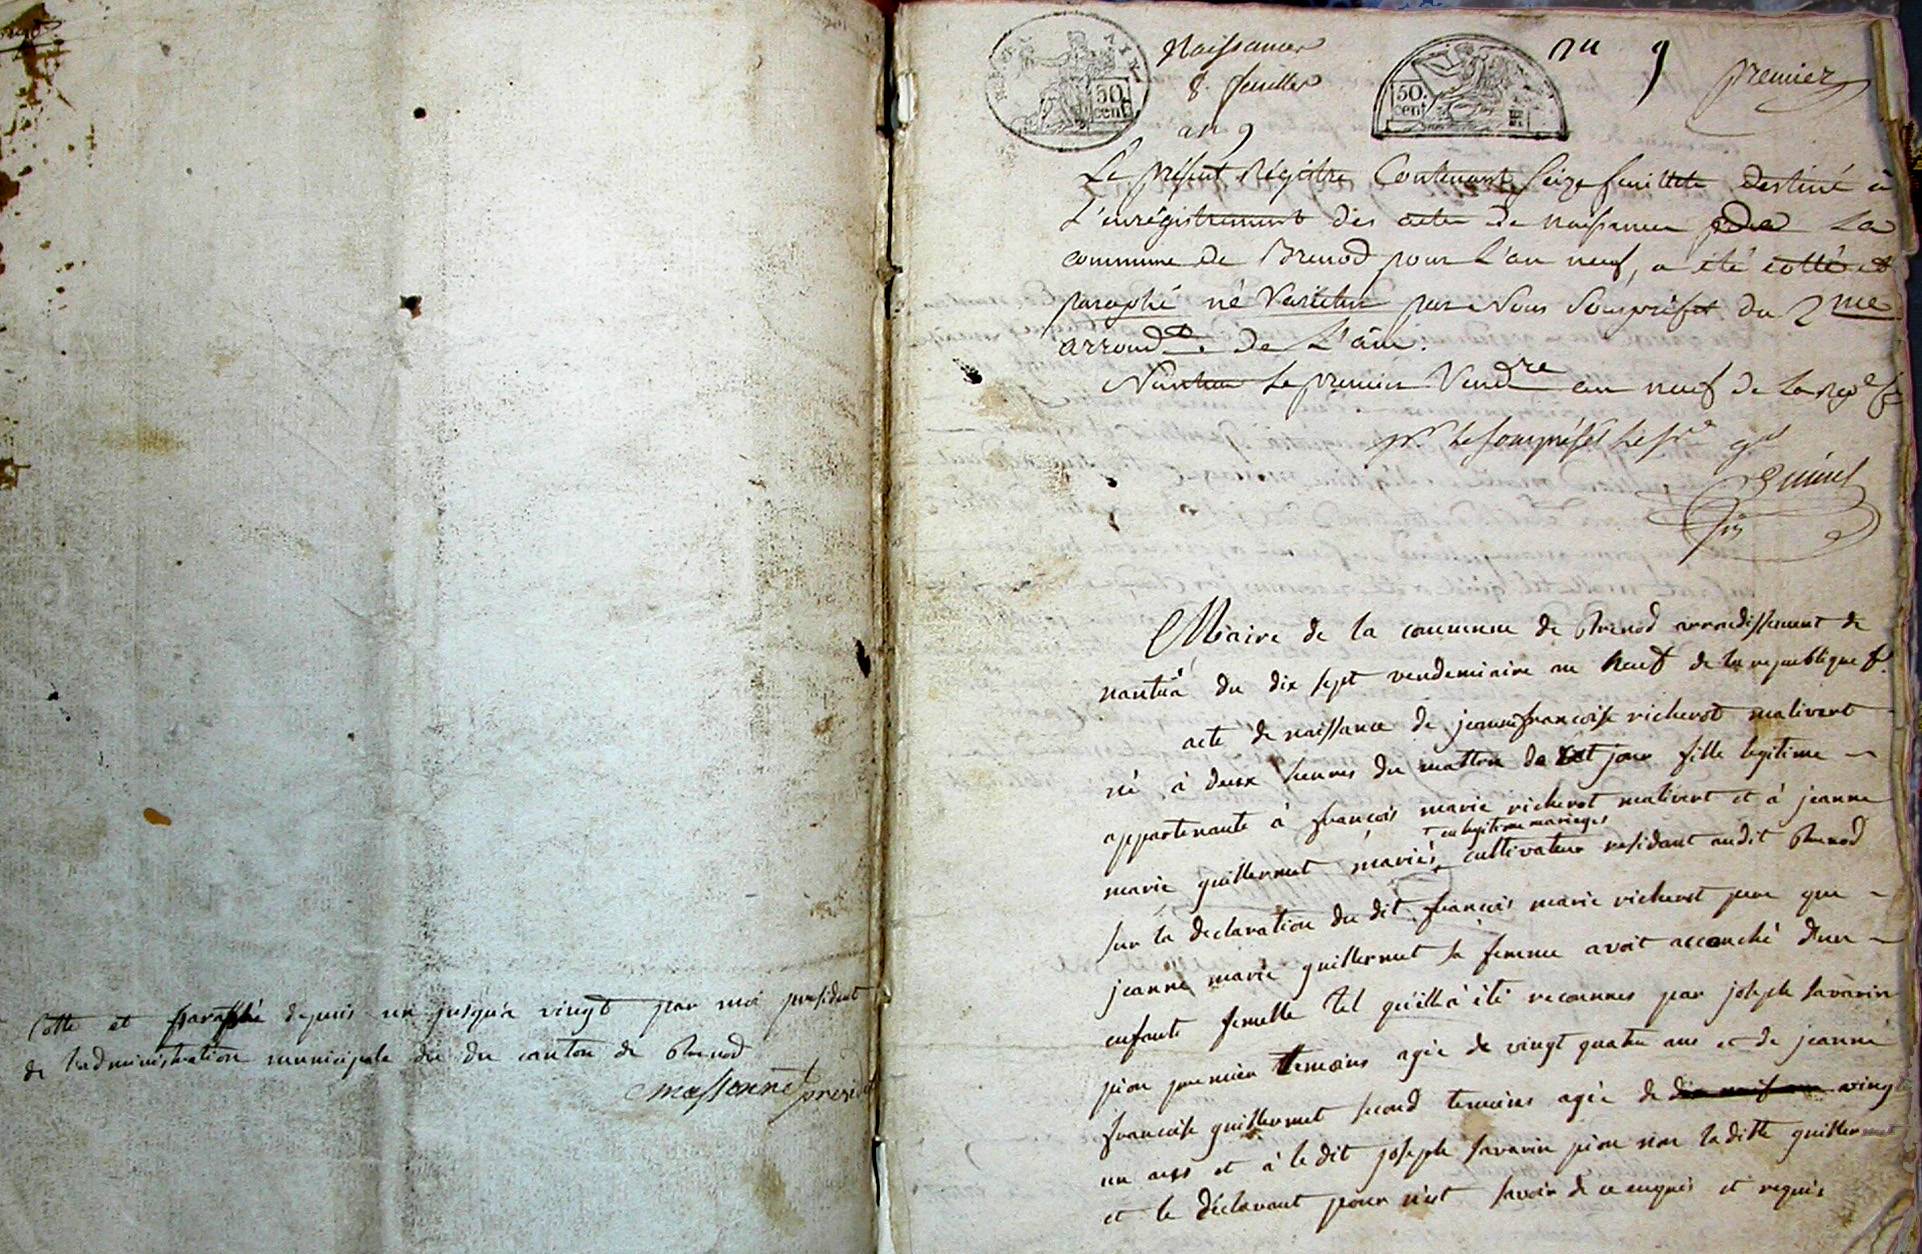 Cotte et paraphé depuis un jusqu'a vingt par moi president
de l'administration municipale du du canton de Brenod
massonnet presid
Naissances
8 feuilles
an 9
50 cent
50. cent
an 9
premier
Le présent Régitre Contenant Seize feuillets destiné à
L'enrégistrement des actes de naissances de La
commune de Brenod pour L'an neuf, a été cotté et
paraphé né Varietur par Nous Souspréfet du 2me
arrondt. De L'ain.
Nantua Le premier Vendre an neuf de La rep
pr. le souspréfet le
Mairie de la commune de Brenod arrondissement de
nantua du dix sept vendemiaire an neuf de la republique f.
acte de naissance de jeanne françoise richerot malivert
né à deux heures du mattin de cet jour fille legitime
appartenante à françois marie richerot malivert et à jeanne
marie guillermet mariés cultivateur residant audit Brenod
en legitime mariages
sur la declaration du dit françois marie richerot pere que
jeanne marie guillermet sa femme avoit accouché d'un
enfante femelle tel quill à été reconnes par joseph savarin
pion premier temoins agée de vingt quatre ans et de jeanne
françoise guillermet second temoins agée de dix neuf ans vingt
un ans et à le dit joseph savarin pion non la ditte guillermet
et le déclarant pour n'est savoir de ce enquis et requis